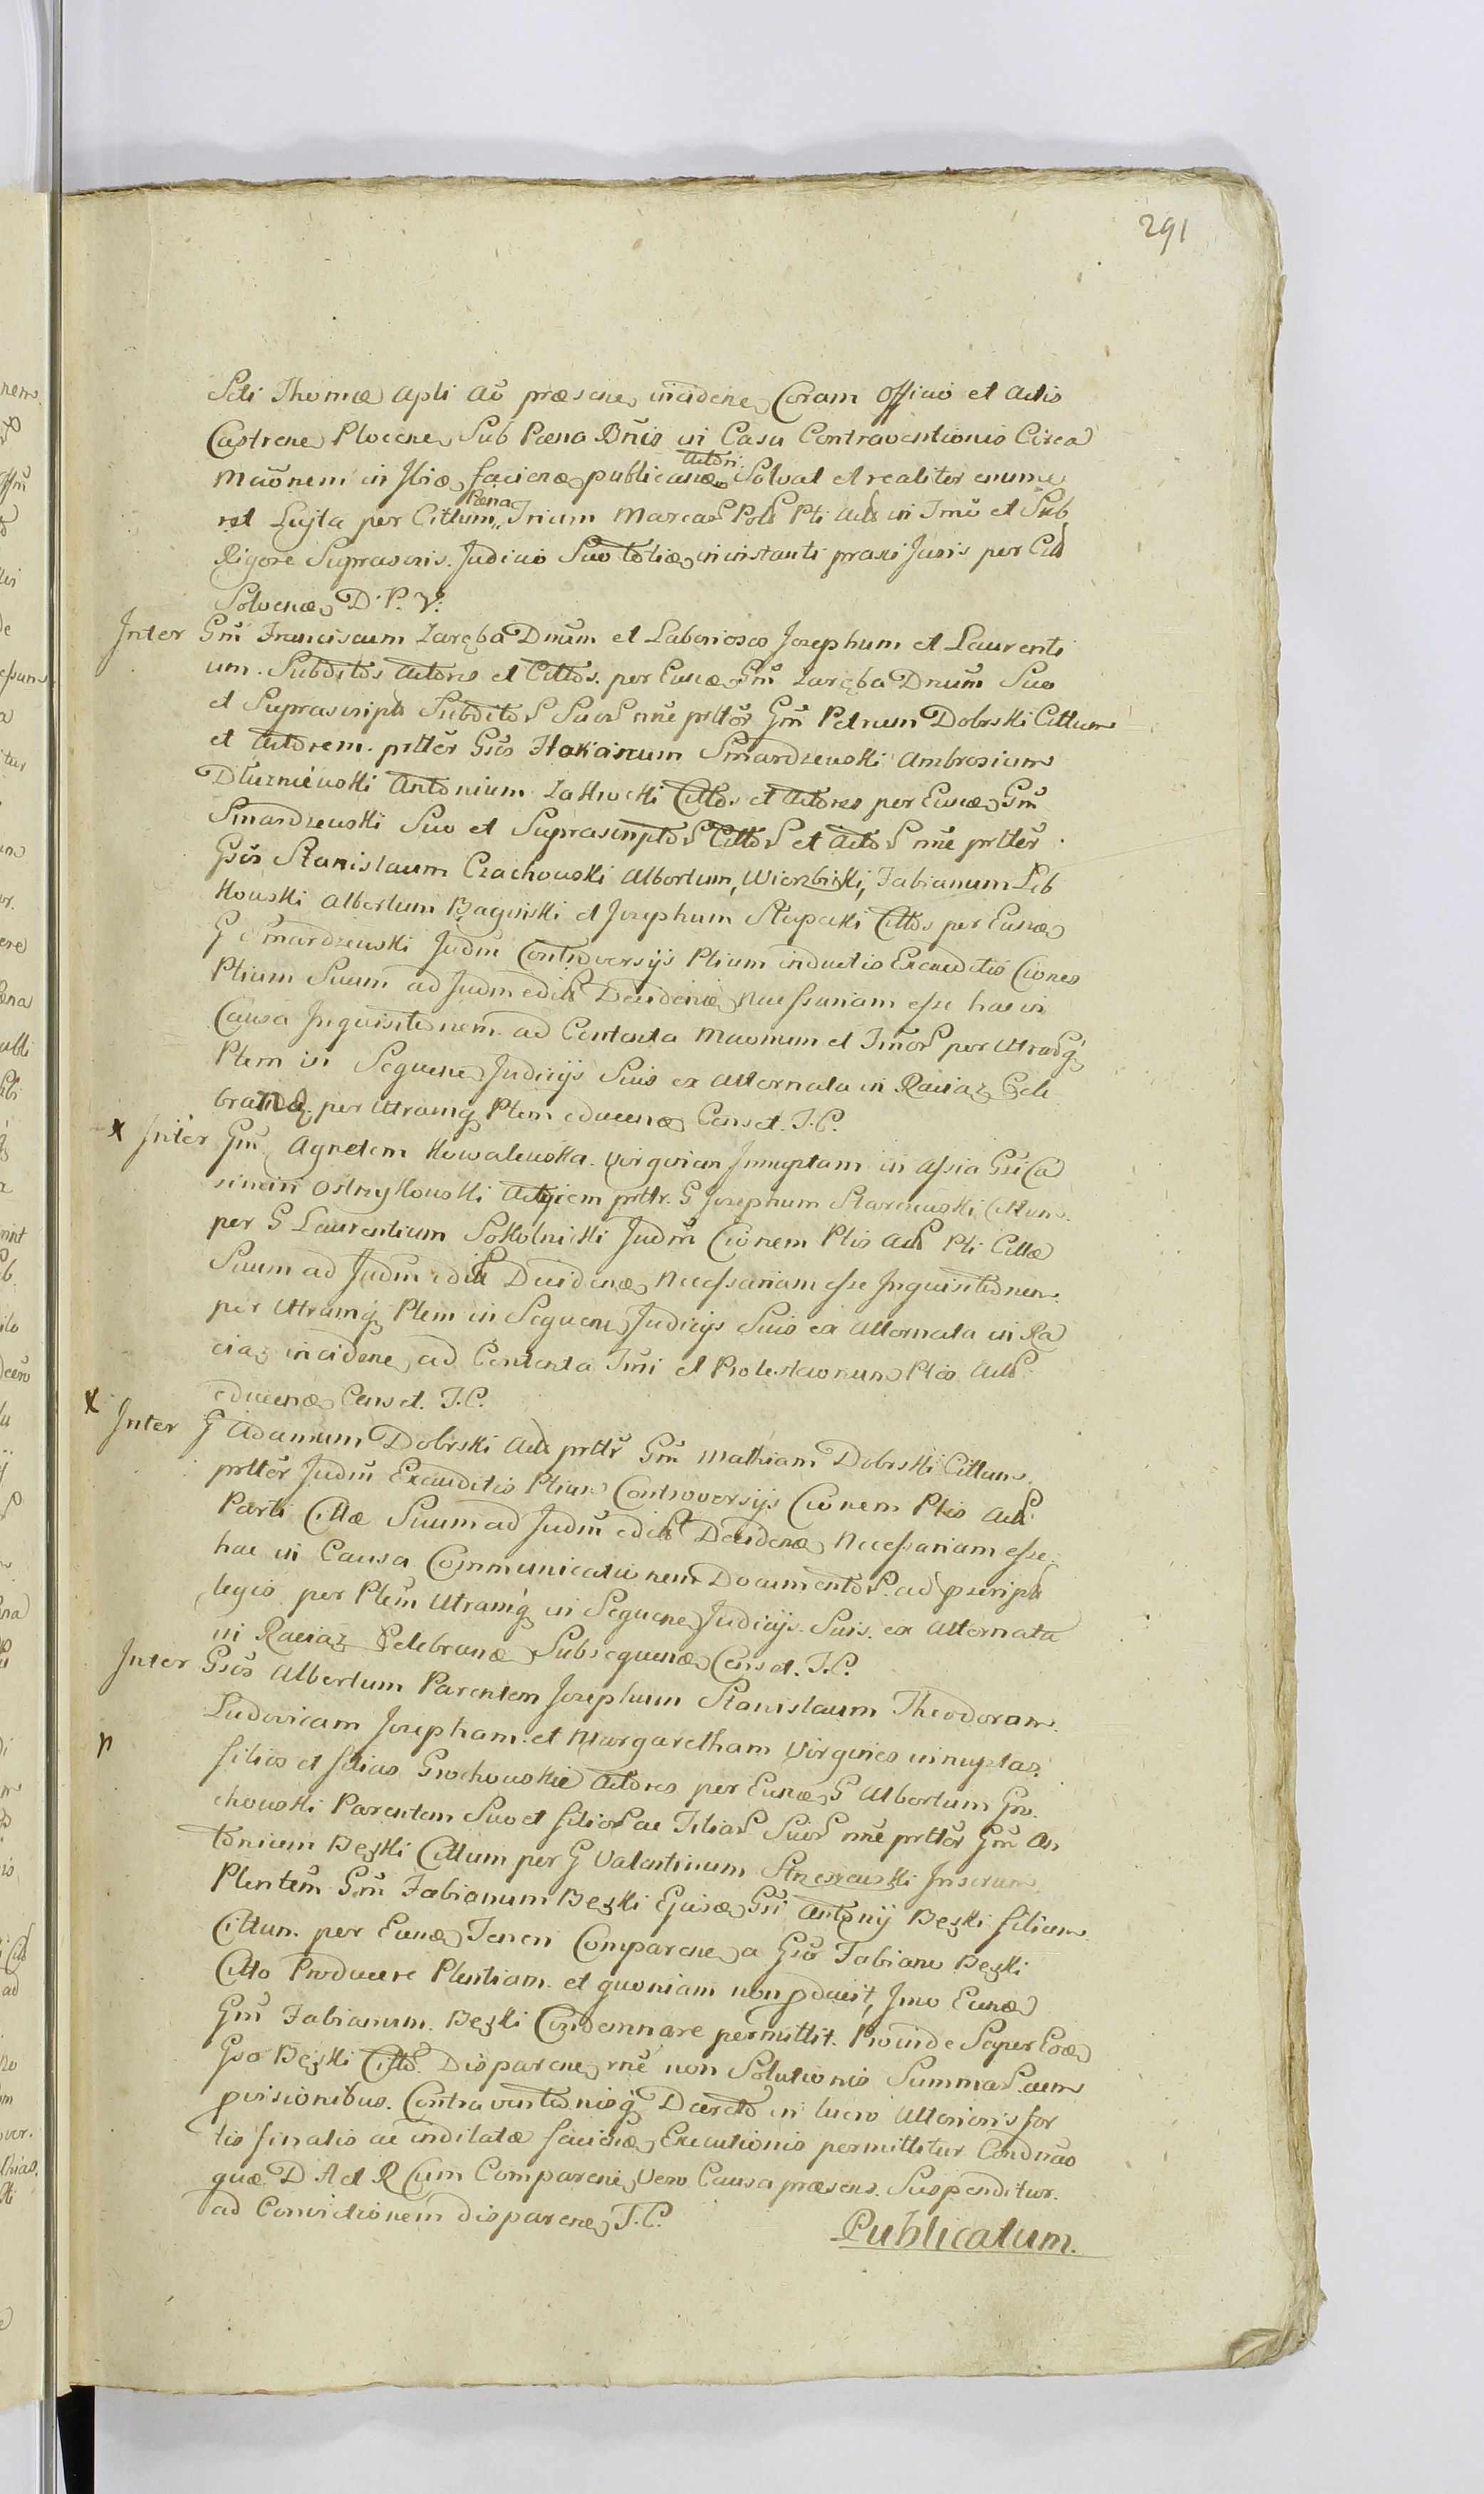 291
Scti Thomæ Apli Ao præsene incidene Coram Officio et Actis
Castrene Plocene Sub Pœna Bnis in Casu Contraventionis Circa
Maonem in Jbiæ facienæ publicanæ Actori Solvat et realiter enume
ret Lujta per Cittum Pœna Trium Marcar Pol Pti Act in Tmo et Sub
Rigore Suprascris. Judicio Suo totiæ in instanti praxi Juris per Cit
Solvenæ D. P. V.
Inter Gm Franciscum Zaręba Dnum et Laboriosos Josephum et Laurenti
um Subditos Actores et Cittos per Eunæ Gm Zaręba Dnum Suo
et Suprascript Subditor Suor nne prtter Gm Petrum Dobrski Cittum
et Actorem prtter Gsos Smardzewski Ambrosium
Dłuzniewski Antonium Zakrocki Cittos et Actores per Eunæ Gm
Smardzewski Suo et Suprascriptor Cittor et Actor nne prtter
Gsos Stanislaum Czachowski Albertum Wierzbicki, Fabianum Leb
kowski Albertum Baginski et Josephum Stępski Cittos per Eunæ
G Smardzewski Judm Controversijs Ptium inductis Exauditis Cciones
Ptium Suum ad Judm edit Decidenæ Necessariam esse hac in
Causa Inquisitionem ad Contenta Maonum et Tmor per Utramq
Ptem in Seguene Judicijs Suis ex Alternata in Raciaz Cele
branæ per Utramq Ptem educenæ Censet. T. C.
x Inter Gm Agnetem Kowalewska Virginem Innuptam in Assia Gsi Ca
simiri Ostrzykowski Actricem prttr. G Josephum Starczewski Cittum
per G Laurentium Sokolnicki Judm Ccionem Ptis Act Pti Cittæ
Suum ad Judm edit Decidenæ Necessariam esse Inquisitionem
per Utramq Ptem in Seguene Judicijs Suis ex Alternata in Ra
ciaz incidene ad Contenta Tmi et Protestaonum Ptis Act
educenæ Censet. T. C.
x Inter G Adamum Dobrski Act prttr Gm Mathiam Dobrski Cittum
prtter Judm Exauditis Ptium Controversijs Ccionem Ptis Act
Parti Cittæ Suum ad Judm edit Decidenæ Necessariam esse
hac in Causa Communicationem Documentor ad pscript
legis per Ptem Utramq in Seguene Judicijs Suis ex Alternata
in Raciaz Celebranæ Subsequenæ Censet. T. C.
Inter Gsos Albertum Parentem Josephum Stanislaum Theodoram
Ludovicam Josepham et Margaretham Virgines innuptas
n filios et filias Grochowskie Actores per Eunæ G Albertum Gro
chowski Parentem Suo et filior ac Filiar Suor nne prtter Gm An
tonium Beski Cittum per G Valentinum Strzeszewski Inserum
Plentem Gm Fabianum Beski Ejusæ Gsi Antonij Beski filium
Cittum per Eunæ Teneri Comparene a Gso Fabiano Beski
Citto Producere Plentiam et quoniam non pduxit, Imo Eunæ
Gm Fabianum Beski Condemnare permittit. Proinde Super Eoæ
Gso Beski Citto Disparene rne non Solutionis Summar cum
pvisionibus Contraventionisq Decreto in lucro Ulterioris for
tis finalis ac indilatæ facienæ Executionis permittitur Condnao
quæ D A et R Cum Comparene Vero Causa præsens Suspenditur
ad Convictionem disparene T. C.
Publicatum.